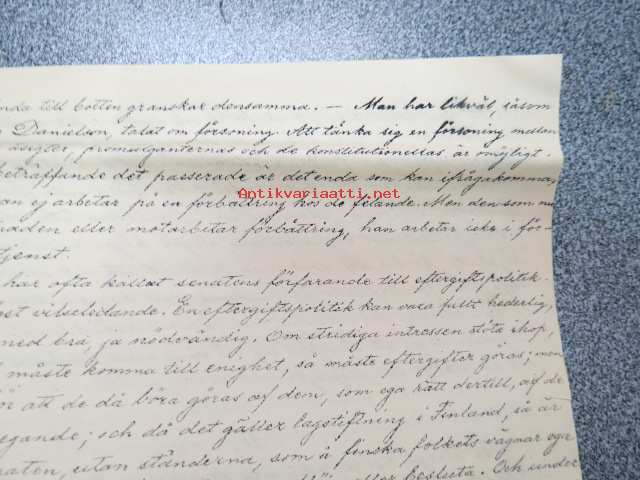 nda till botten granskar densamma. — Man har likväl, såsom
Danielson, talat om försoning. Att tänka sig en försoning mellan
åsigter, promulganternas och de konstitutionellas är omöjligt.
beträffande det passerade är det enda som kan ifrågakomma,
an ej arbetar på en förbättring hos de felande. Men den som
naden eller motarbetar förbättring, han arbetar icke i för-
tjenst.
Antikvariaatti.net
har ofta kallat senatens förfarande till eftergiftspolitik.
vilseledande. En eftergiftspolitik kan vara fullt hederlig,
med bra, ja nödvändig. Om stridiga intressen stöta ihop,
måste komma till enighet, så måste eftergifter göras; men
ör att de då böra göras af dem, som ega rätt dertill, af de
egande; och då det gäller lagstiftning i Finland, så är
naten, utan ständerna, som å finska folkets vägnar ega
eller besluta. Och under